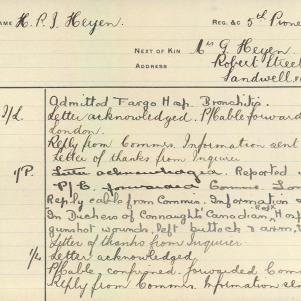 NAME H. P. J. Heyen. REG. &C 5th Pione
NEXT OF KIN Mrs G. Heyen.
ADDRESS Robert Street
Sandwell
Admitted Fargo Hosp. Bronchitis.
Letter acknowledged. P/Cable forward
London.
Reply from Commrs. Information sent
Letter of thanks from Inquirer
Letter acknowledged. Reported
P/C. forwarded Commrs. Lon
Reply cable from Commrs. Information s
In Duchess of Connaught's Canadian Hosp
gunshot wounds, left buttock & arm,
Letter of thanks from Inquirer
Letter acknowledged
P/Cable confirmed. forwarded Com
Reply from Commrs. Information se